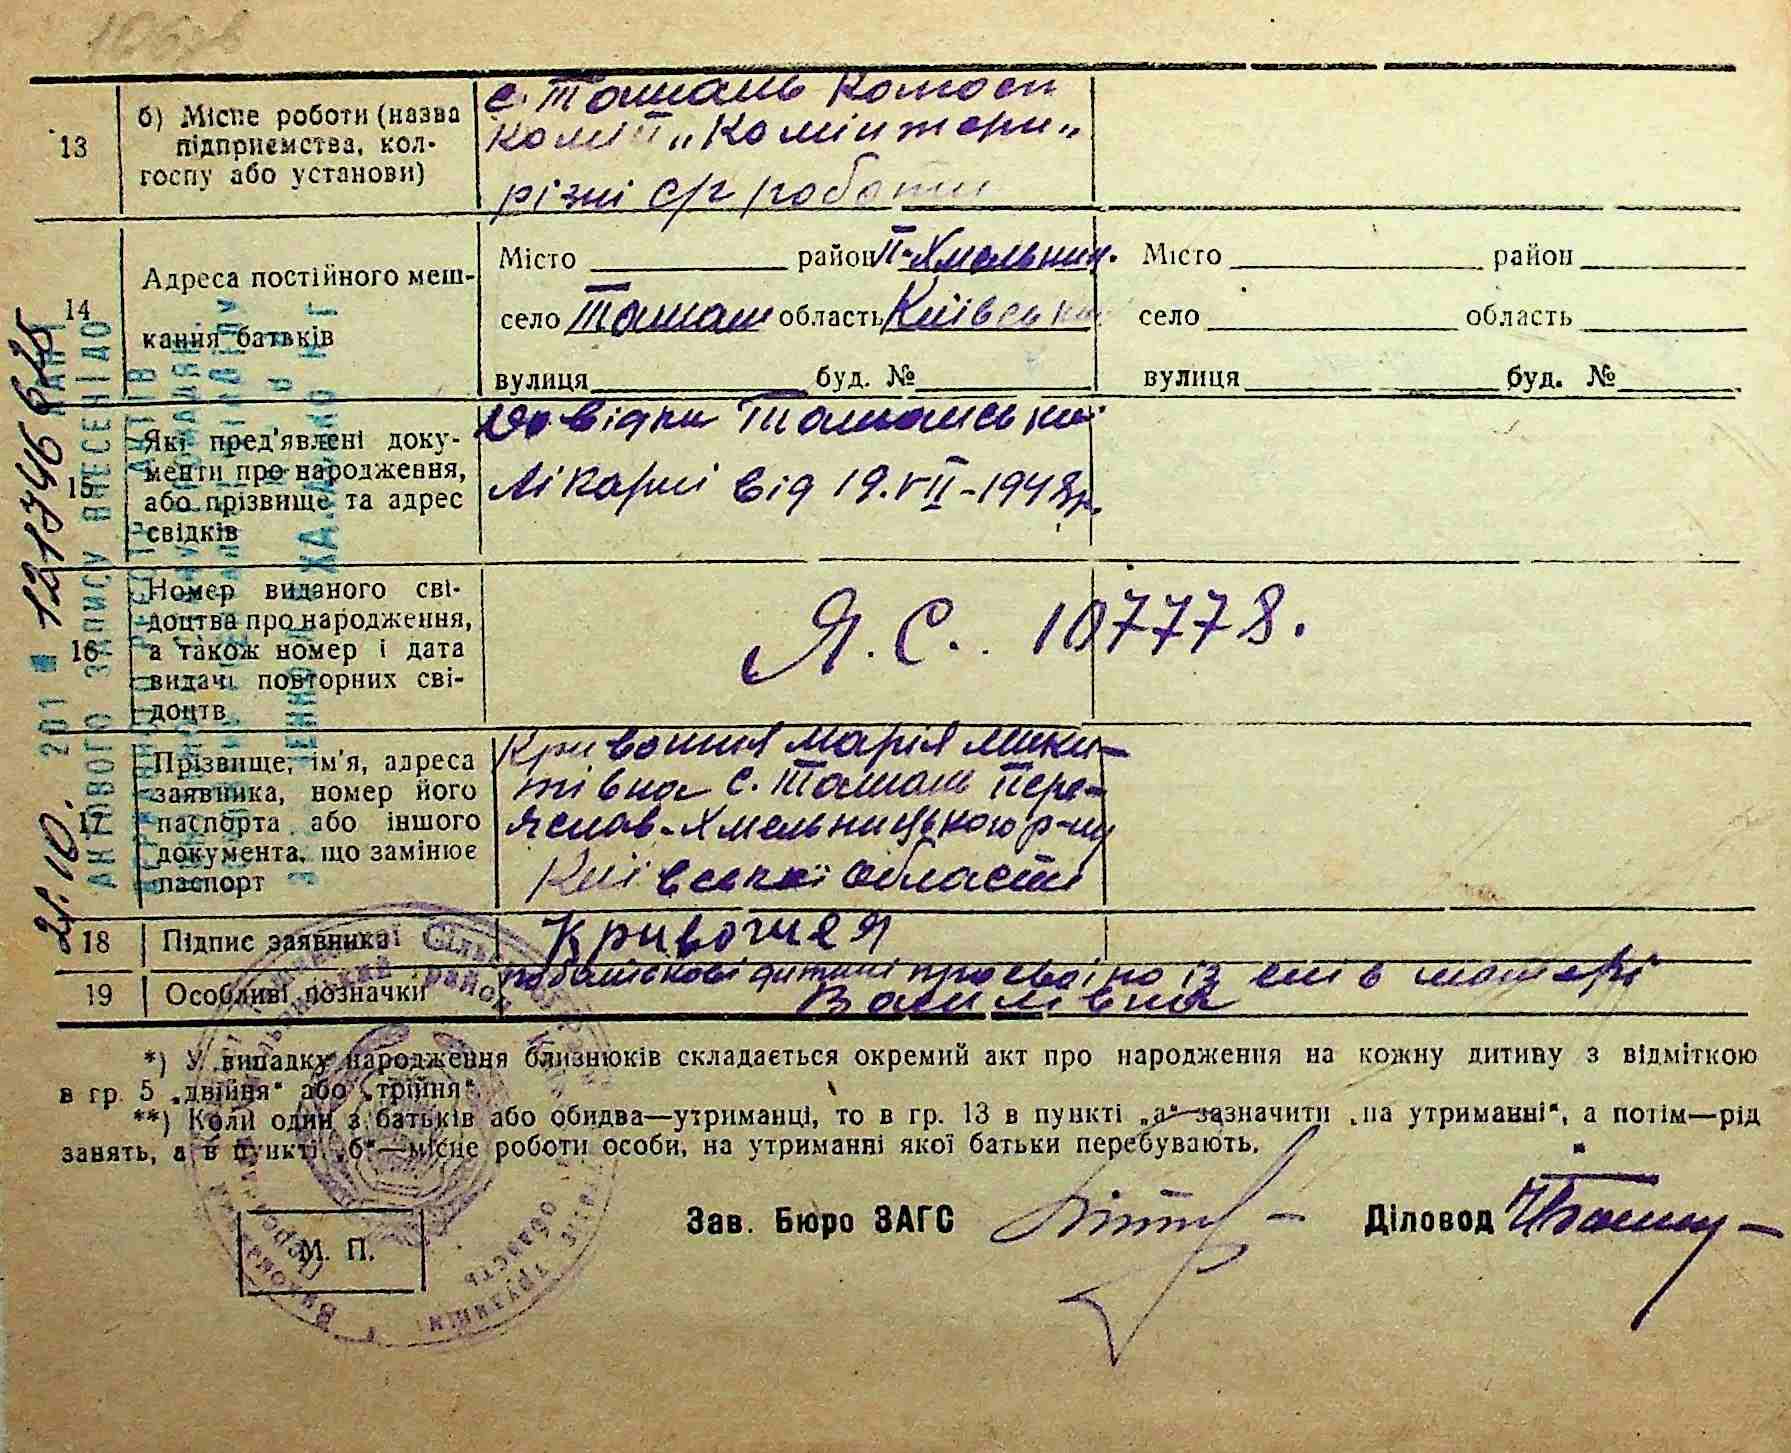 13
б) Місце роботи (назва
підприємства, кол-
госпу або установи)
с. Ташань Колгосп
"Комінтерн"
різні с/г роботи
14
Адреса постійного меш-
кання батьків
Місто район П-Хмельниц.
село Ташань область Київська
вулиця буд. №
Місто район
село область
вулиця буд. №
15
Які пред'явлені доку-
менти про народження,
або прізвище та адрес
свідків
Довідки Ташанської
лікарні від 19.VII-1948р.
16
Номер виданого сві-
доцтва про народження,
а також номер і дата
видачі повторних сві-
доцтв
Я.С. 107778.
17
Прізвище, ім'я, адреса
заявника, номер його
паспорта або іншого
документа, що замінює
паспорт
Кривошия Марія Мики-
тівна с. Ташань Пере-
яслав-Хмельницького р-ну
Київської області
18
Підпис заявника
Кривошея
19
Особливі позначки
по батькові дитині присвоєно із слів матері
Василівна
*) У випадку народження близнюків складається окремий акт про народження на кожну дитину з відміткою
в гр. 5 „двійня" або „трійня".
**) Коли один з батьків або обидва—утриманці, то в гр. 13 в пункті „а"—зазначити „на утриманні", а потім—рід
занять, а в пункті „б"—місце роботи особи, на утриманні якої батьки перебувають.
М. П.
Зав. Бюро ЗАГС
Діловод
21.10. 201
АКТОВОГО ЗАПИСУ ВНЕСЕНІ ДО